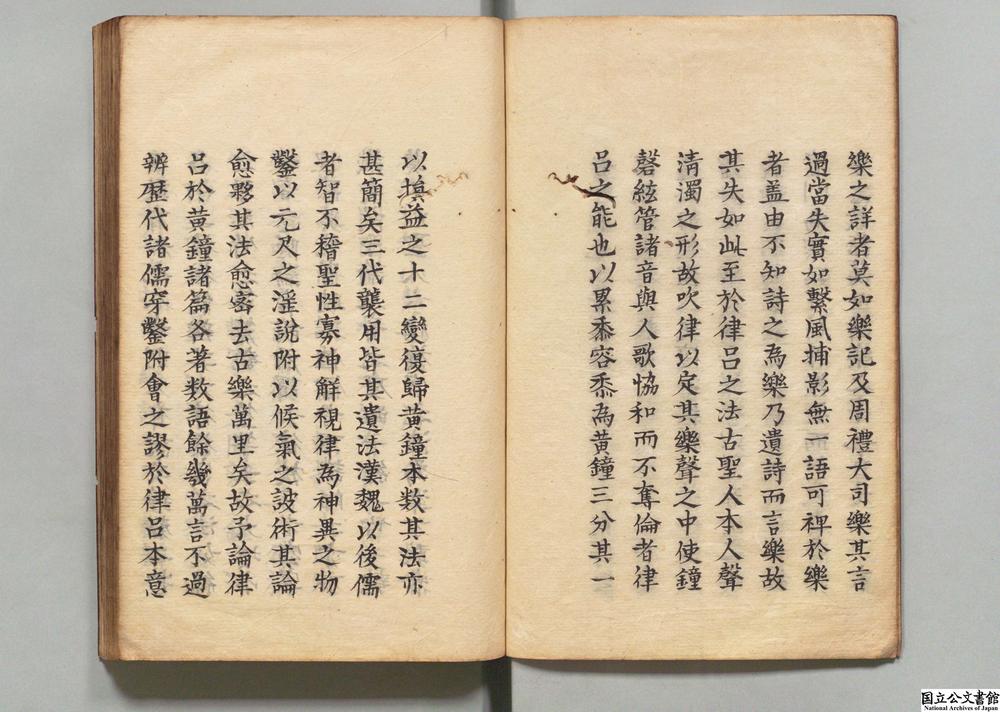 樂之詳者莫如樂記及周禮大司樂其言
過當失實如繫風捕影無一語可裨於樂
者盖由不知詩之為樂乃遺詩而言樂故
其失如此至於律呂之法古聖人本人聲
清濁之形故吹律以定其樂聲之中使鐘
磬絃管諸音與人歌恊和而不奪倫者律
呂之能也以累黍容黍為黄鐘三分其一
以損益之十二變復歸黄鐘本数其法亦
甚簡矣三代襲用皆其遺法漢魏以後儒
者智不稽聖性寡神解視律為神異之物
鑿以元尺之滛說附以候氣之詖術其論
愈夥其法愈宻去古樂萬里矣故予論律
呂於黄鐘諸篇各著数語餘幾萬言不過
辨歷代諸儒穿鑿附會之謬於律呂本意
国立公文書館
National Archives of Japan